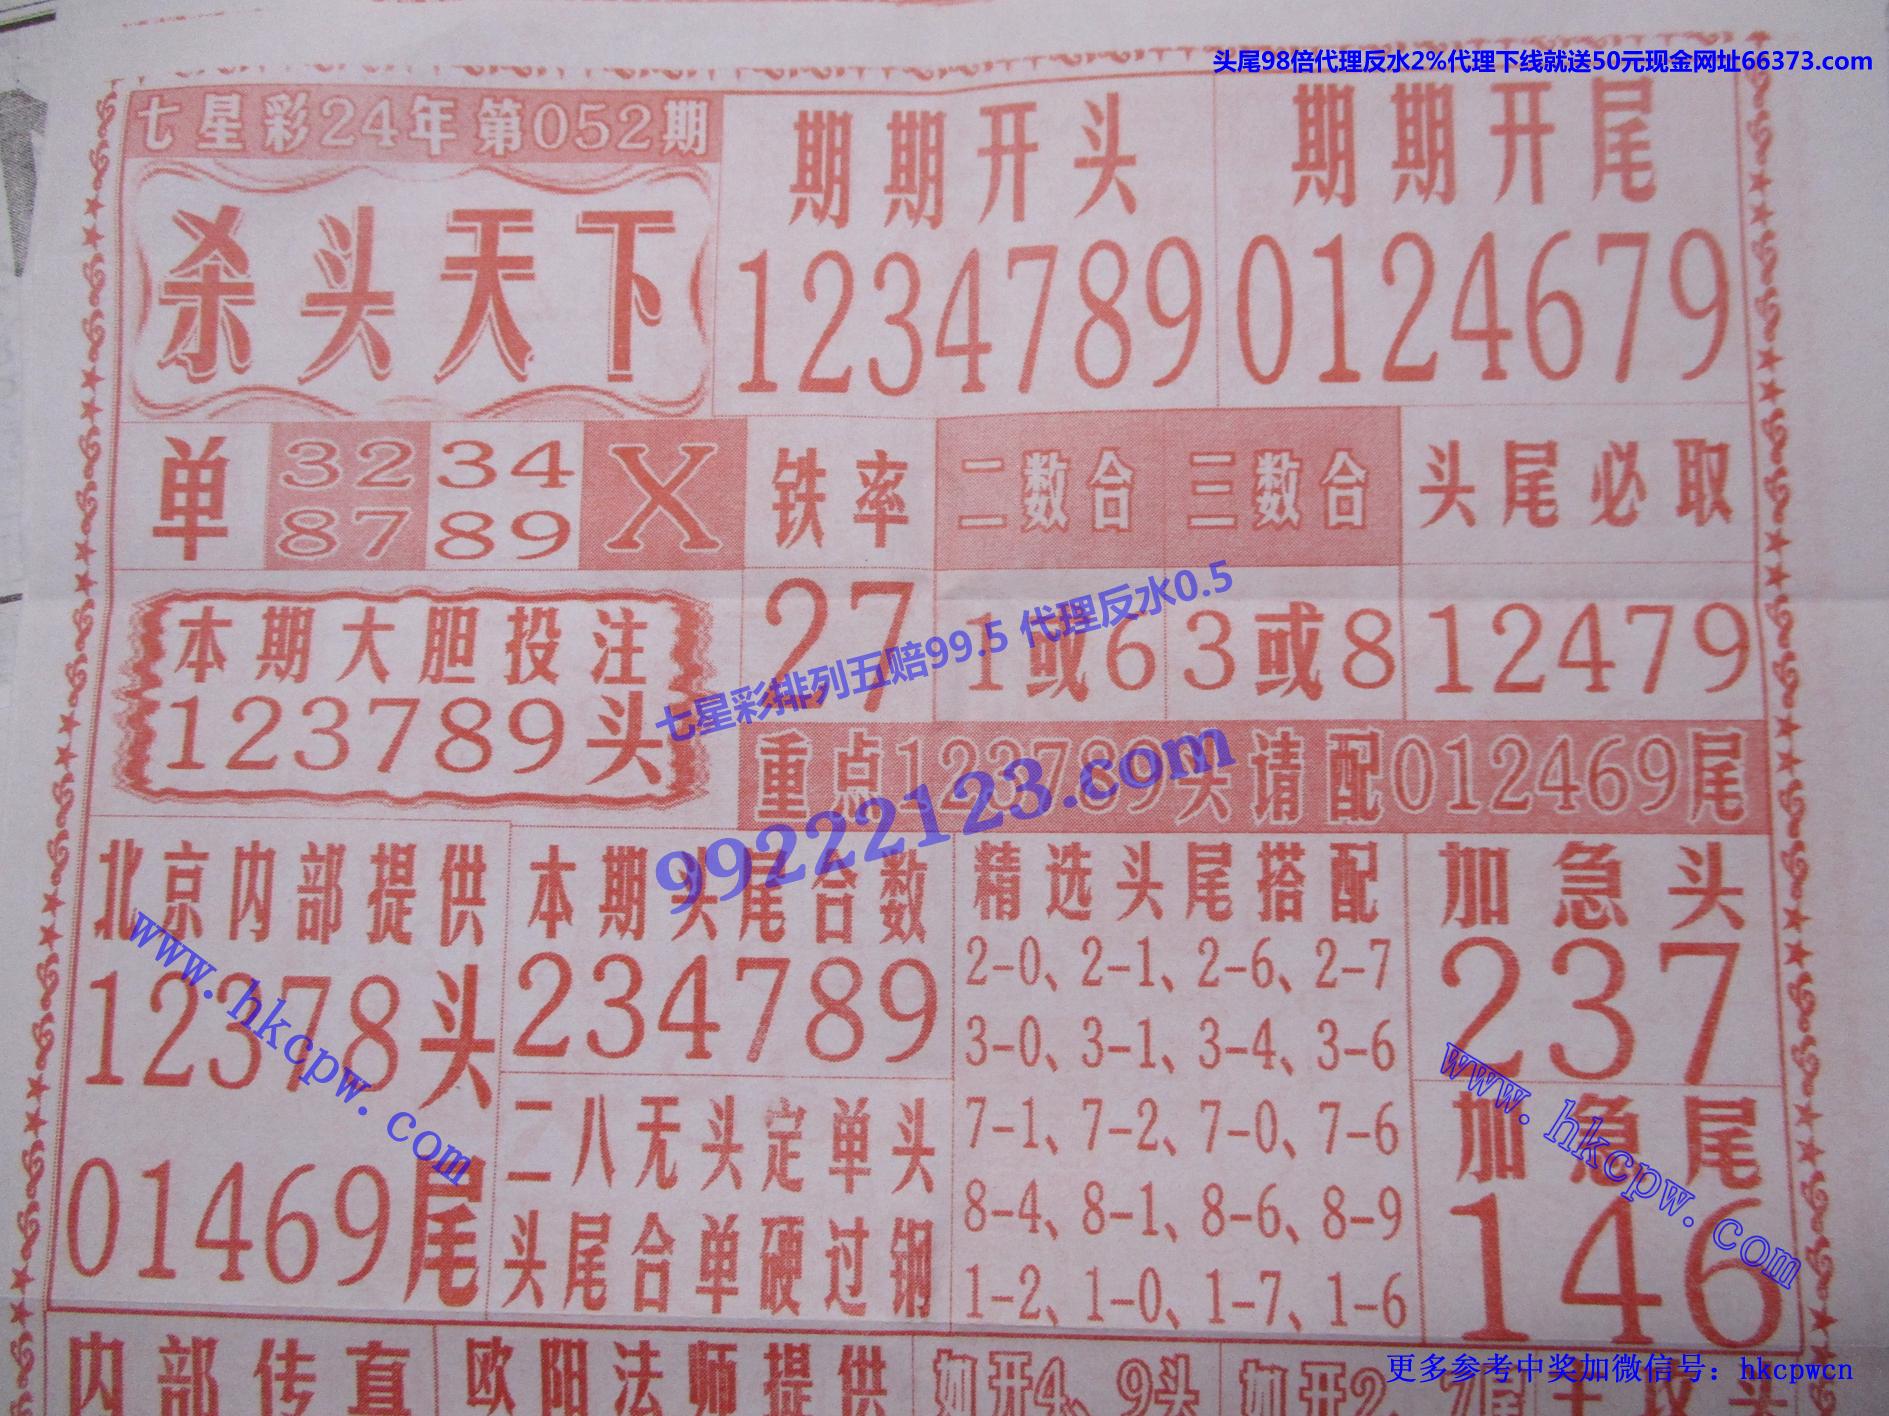 头尾98倍代理反水2%代理下线就送50元现金网址66373.com
七星彩24年第052期
杀头天下
期期开头
1234789
期期开尾
0124679
单
32 34
87 89
X
铁率
27
二数合
1或6
三数合
3或8
头尾必取
12479
本期大胆投注
123789头
重点123789头请配012469尾
七星彩排列五赔99.5 代理反水0.5
99222123.com
北京内部提供
12378头
01469尾
www.hkcpw.com
本期头尾合数
234789
二八无头定单头
头尾合单硬过钢
精选头尾搭配
2-0、2-1、2-6、2-7
3-0、3-1、3-4、3-6
7-1、7-2、7-0、7-6
8-4、8-1、8-6、8-9
1-2、1-0、1-7、1-6
加急头
237
加急尾
146
www.hkcpw.com
内部传真
欧阳法师提供
如开4、9头
如开2、7尾
更多参考中奖加微信号：hkcpwcn